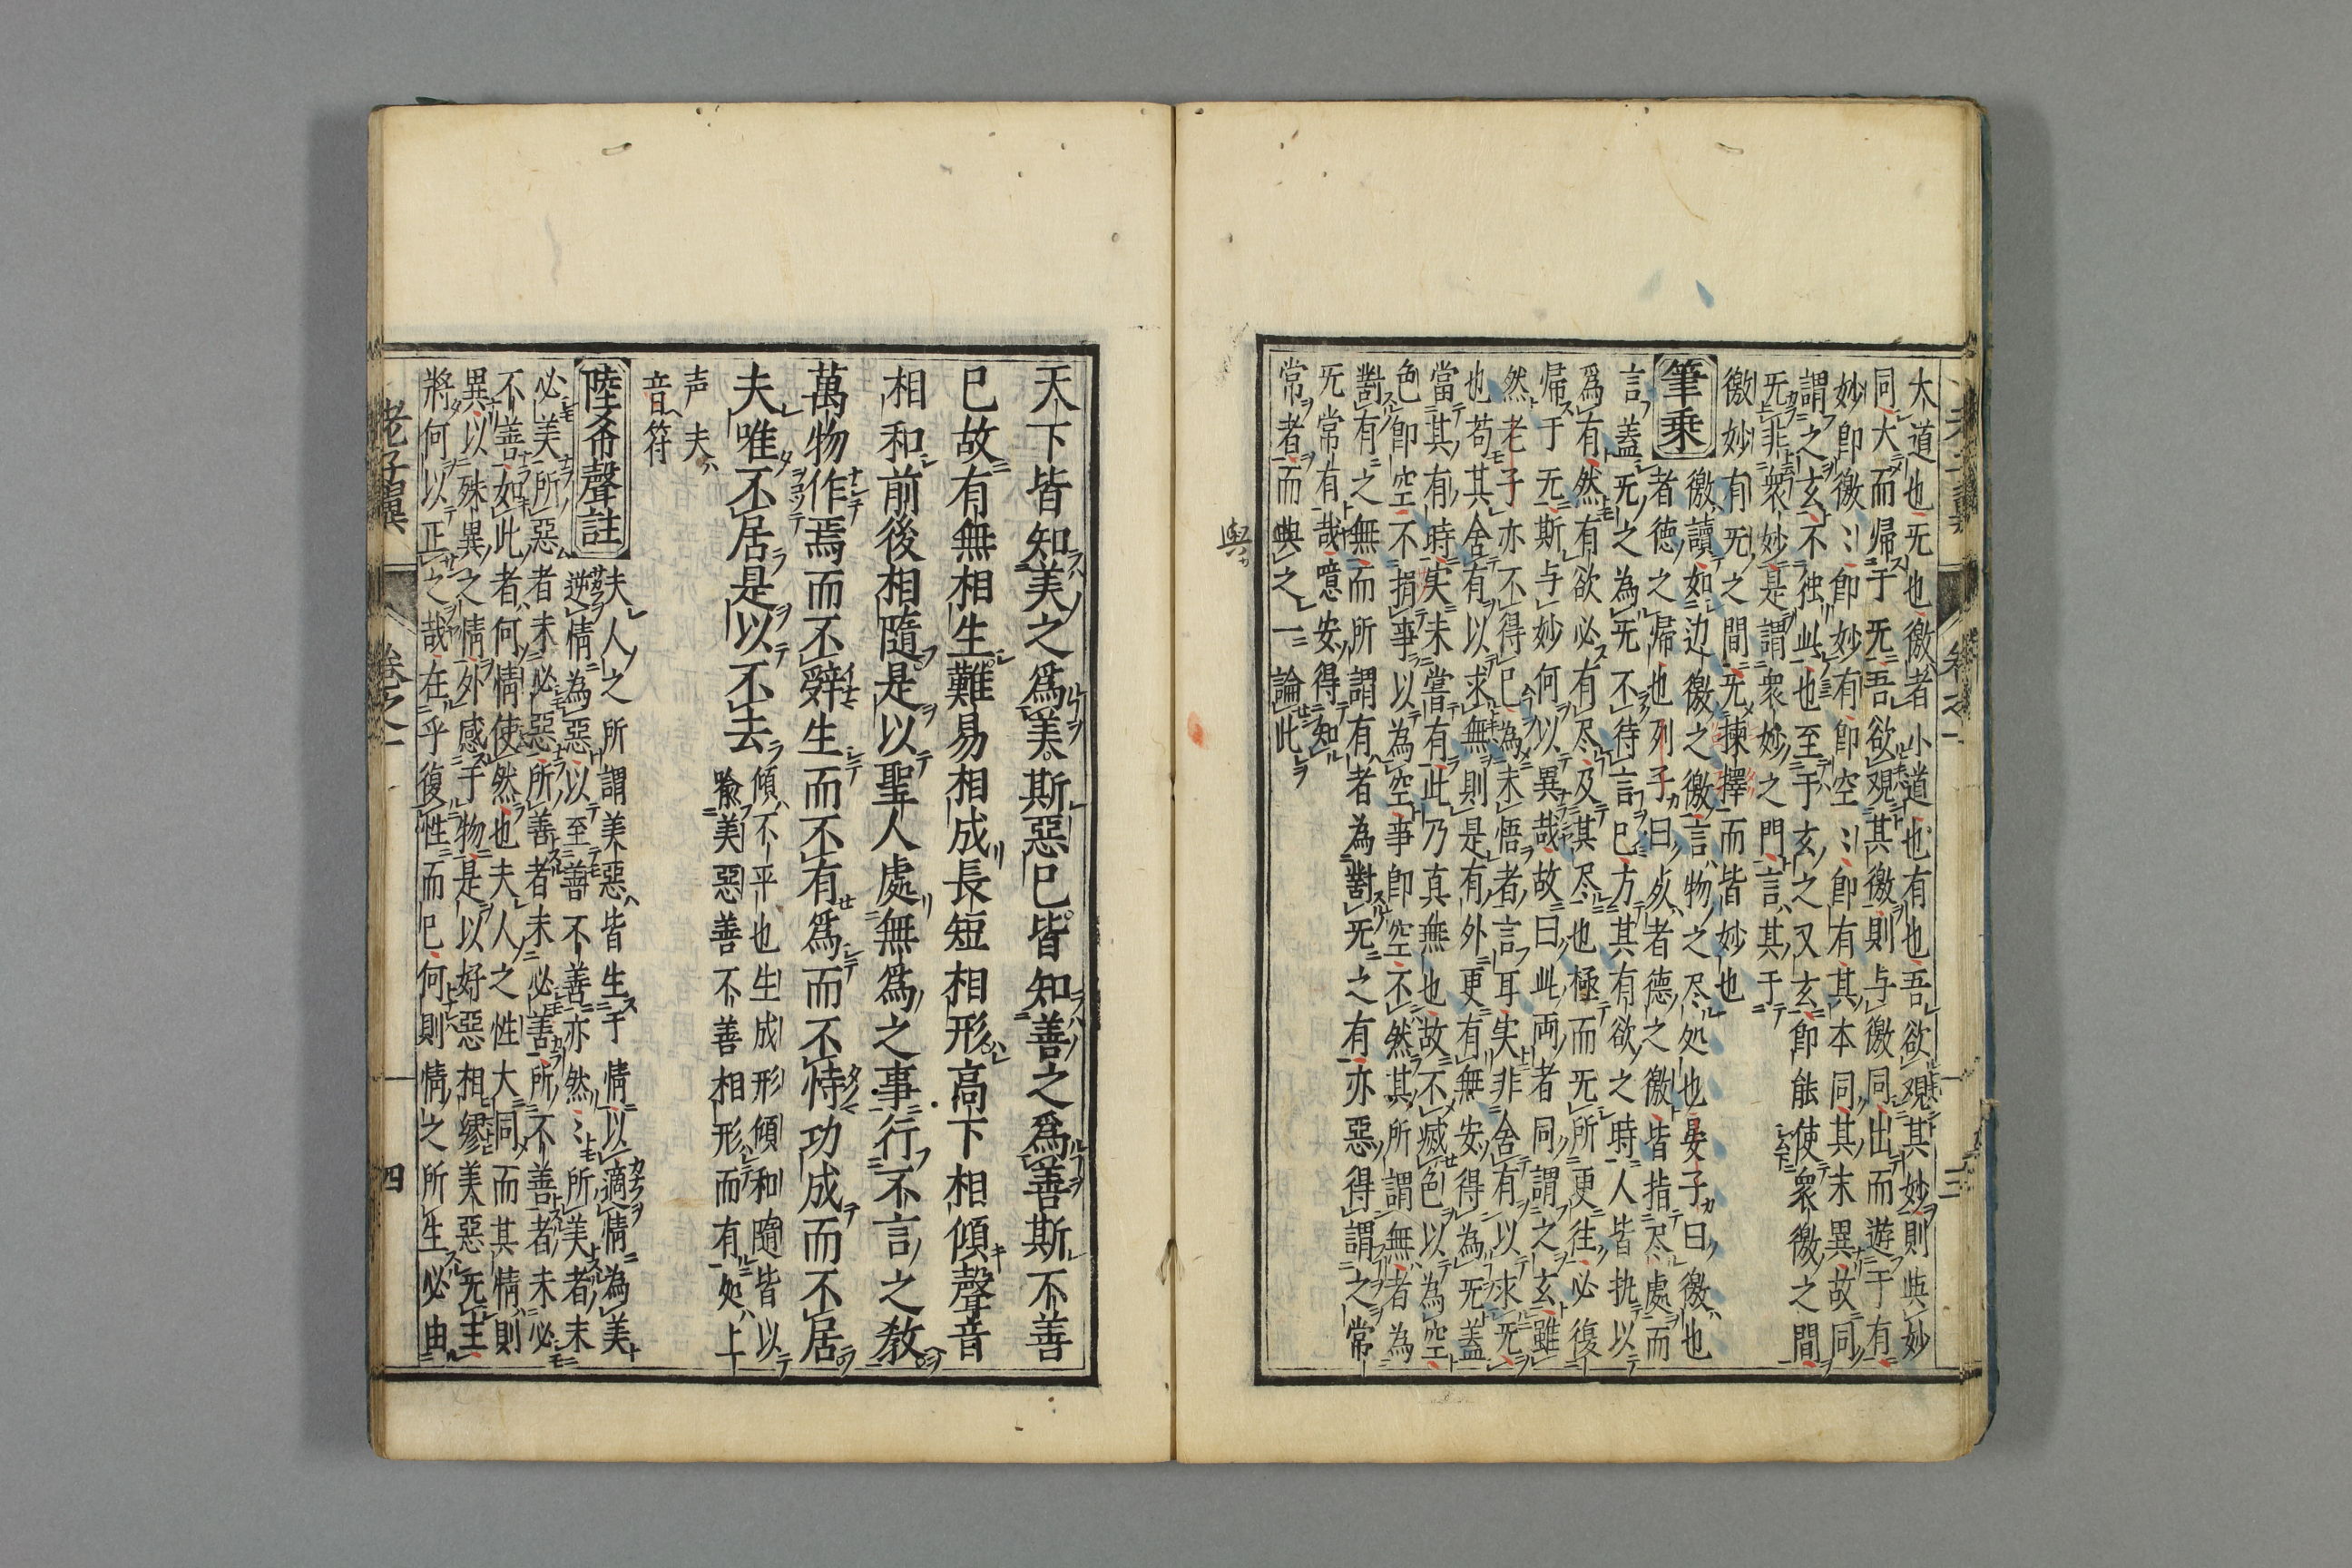 大道也无也徼者小道也有也吾欲觀其妙則与妙
同大而帰于无吾欲觀其徼則与徼同出而遊于有
妙即徼〻即妙有即空〻即有其本同其末異故同
謂之玄不独此也至于玄之又玄即能使衆徼之間
无非衆妙是謂衆妙之門言其于
徼妙有无之間无揀擇而皆妙也
筆乗 徼讀如边徼之徼言物之尽処也晏子曰徼也
者德之帰也列子曰死者德之徼皆指尽處而
言蓋无之為无不待言已方其有欲之時人皆执以
爲有然有欲必有尽及其尽也極而无所更往必復
帰于无斯与妙何以異哉故曰此両者同謂之玄雖
然老子亦不得已為未悟者言耳実非舍有以求无
也苟其舍有以求無則是有外更有無安得為无蓋
當其有時実未嘗有此乃真無也故不滅色以為空
色即空不捐事以為空事即空不然其所謂無者為
對有之無而所謂有者為對无之有亦惡得謂之常
无常有哉噫安得知
常者而與之一論此
與
老子翼 卷之一 三
天下皆知美之爲美斯惡已皆知善之爲善斯不善
已故有無相生難易相成長短相形高下相傾聲音
相和前後相隨是以聖人處無爲之事行不言之教
萬物作焉而不辤生而不有爲而不恃功成而不居
夫唯不居是以不去 傾不平也生成形傾和隨皆以
喩美惡善不善相形而有処上
声夫
音符
陸希聲註 夫人之所謂美惡皆生于情以適情為美
逆情為惡以至善不善亦然〻所美者未
必美所惡者未必惡所善者未必善所不善者未必
不善如此者何情使然也夫人之性大同而其情則
異以殊異之情外感于物是以好惡相繆美惡无主
將何以正之哉在乎復性而已何則情之所生必由
老子翼 卷之一 四